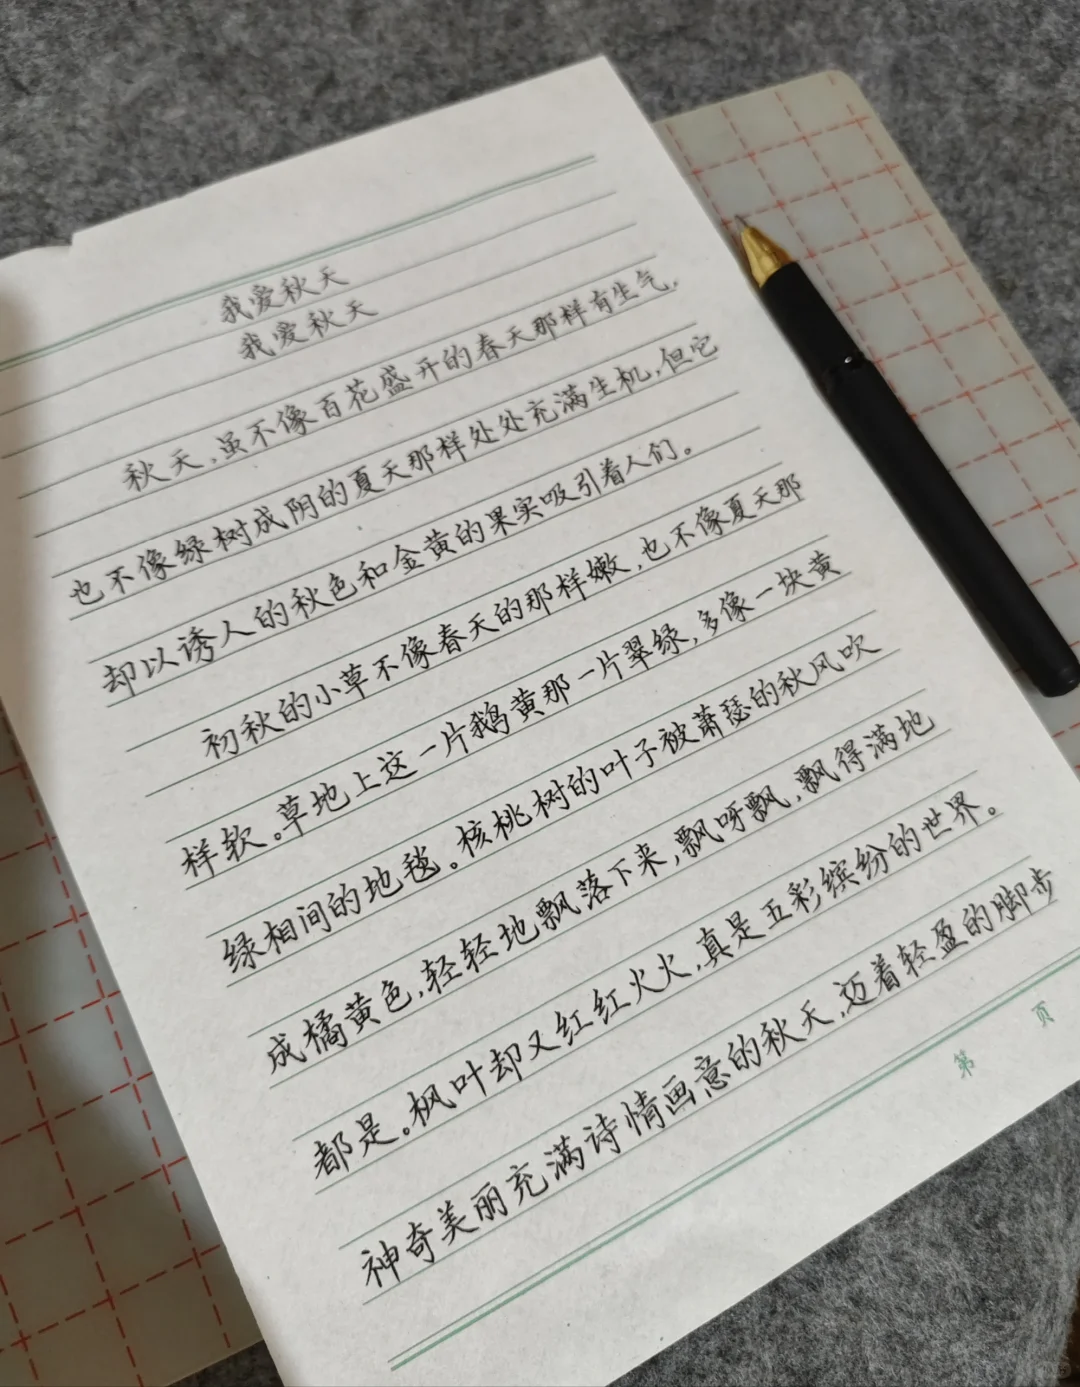 我爱秋天
我爱秋天
秋天,虽不像百花盛开的春天那样有生气,
也不像绿树成阴的夏天那样处处充满生机,但它
却以诱人的秋色和金黄的果实吸引着人们。
初秋的小草不像春天的那样嫩,也不像夏天那
样软。草地上这一片鹅黄那一片翠绿,多像一块黄
绿相间的地毯。核桃树的叶子被萧瑟的秋风吹
成橘黄色,轻轻地飘落下来,飘呀飘,飘得满地
都是。枫叶却又红红火火,真是五彩缤纷的世界。
神奇美丽充满诗情画意的秋天,迈着轻盈的脚步
第 页